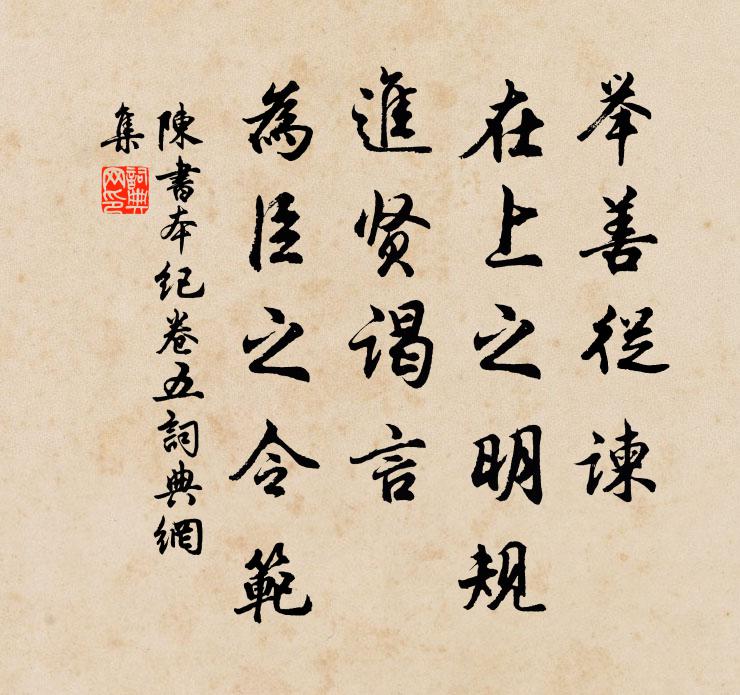 举善從諫
在上之明規
進贤谒言
為臣之令範
陳書本纪卷五詞典網
集
詞典
网印